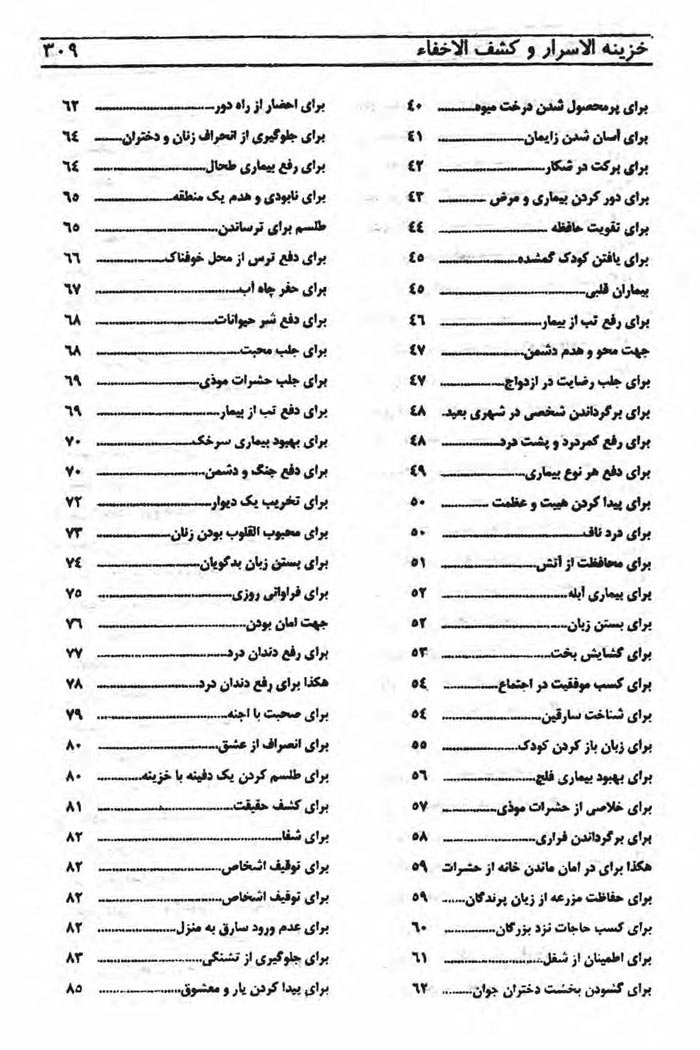 خزینه الاسرار و کشف الاخفاء ۳۰۹
برای پرمحصول شدن درخت میوه ۴۰
برای آسان شدن زایمان ۴۱
برای برکت در شکار ۴۲
برای دور کردن بیماری و مرض ۴۳
برای تقویت حافظه ۴۴
برای یافتن کودک گمشده ۴۵
بیماران قلبی ۴۵
برای رفع تب از بیمار ۴۶
جهت محو و هدم دشمن ۴۷
برای جلب رضایت در ازدواج ۴۷
برای برگرداندن شخصی در شهری بعید ۴۸
برای رفع کمردرد و پشت درد ۴۸
برای دفع هر نوع بیماری ۴۹
برای پیدا کردن هیبت و عظمت ۵۰
برای درد ناف ۵۰
برای محافظت از آتش ۵۱
برای بیماری آبله ۵۲
برای بستن زبان ۵۲
برای گشایش بخت ۵۳
برای کسب موفقیت در اجتماع ۵۴
برای شناخت سارقین ۵۴
برای زبان باز کردن کودک ۵۵
برای بهبود بیماری فلج ۵۶
برای خلاصی از حشرات موذی ۵۷
برای برگرداندن فراری ۵۸
هکذا برای در امان ماندن خانه از حشرات ۵۹
برای حفاظت مزرعه از زیان پرندگان ۵۹
برای کسب حاجات نزد بزرگان ۶۰
برای اطمینان از شغل ۶۱
برای گشودن بخشت دختران جوان ۶۲
برای احضار از راه دور ۶۲
برای جلوگیری از انحراف زنان و دختران ۶۴
برای رفع بیماری طحال ۶۴
برای نابودی و هدم یک منطقه ۶۵
طلسم برای ترساندن ۶۵
برای دفع ترس از محل خوفناک ۶۶
برای حفر چاه آب ۶۷
برای دفع شر حیوانات ۶۸
برای جلب محبت ۶۸
برای جلب حشرات موذی ۶۹
برای دفع تب از بیمار ۶۹
برای بهبود بیماری سرخک ۷۰
برای دفع جنگ و دشمن ۷۰
برای تخریب یک دیوار ۷۲
برای محبوب القلوب بودن زنان ۷۳
برای بستن زبان بدگویان ۷۴
برای فراوانی روزی ۷۵
جهت امان بودن ۷۶
برای رفع دندان درد ۷۷
هکذا برای رفع دندان درد ۷۸
برای صحبت با اجنه ۷۹
برای انصراف از عشق ۸۰
برای طلسم کردن یک دفینه یا خزینه ۸۰
برای کشف حقیقت ۸۱
برای شفا ۸۲
برای توقیف اشخاص ۸۲
برای توقیف اشخاص ۸۲
برای عدم ورود سارق به منزل ۸۲
برای جلوگیری از تشنگی ۸۳
برای پیدا کردن یار و معشوق ۸۵